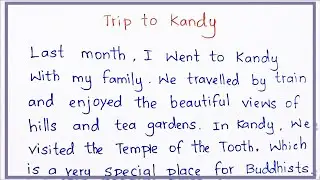 Trip to Kandy
Last month, I went to Kandy
with my family. We travelled by train
and enjoyed the beautiful views of
hills and tea gardens. In Kandy, we
visited the Temple of the Tooth. Which
is a very special place for Buddhists.